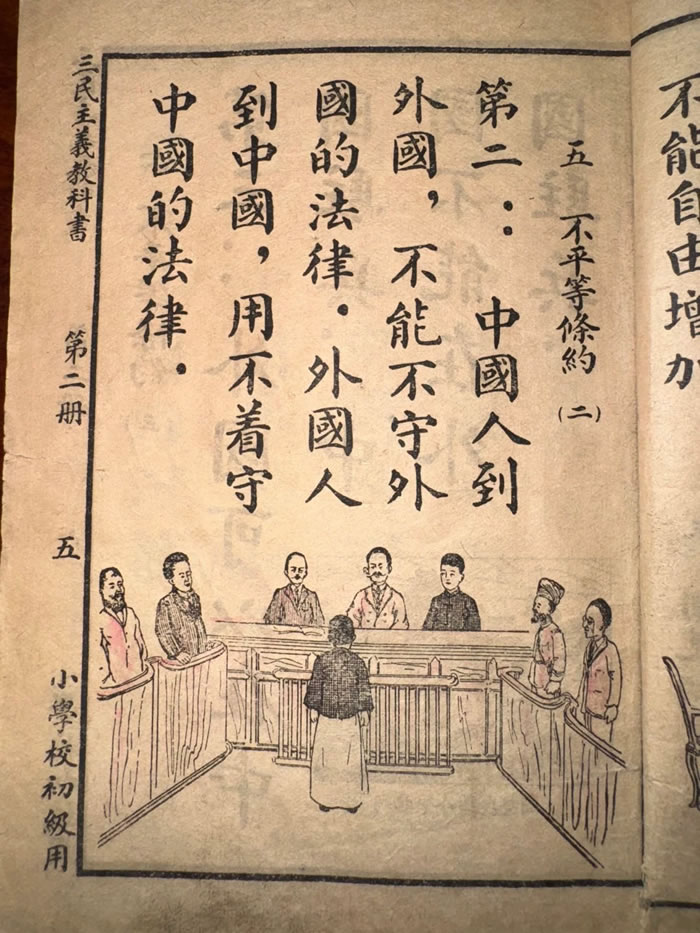 不能自由增加
五 不平等條約 (二)
第二： 中國人到
外國，不能不守外
國的法律．外國人
到中國，用不着守
中國的法律．
三民主義教科書 第二册 五 小學校初級用